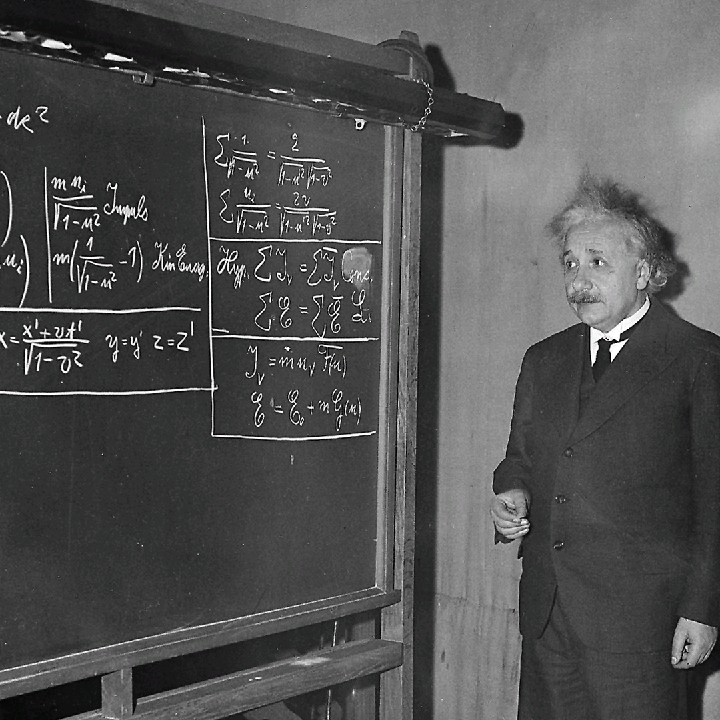 dx²
m uᵢ / √1-u² Impuls
m(1/√1-u² -1) Kin Energ.
uᵢ)
x = x'+vt' / √1-v² y=y' z=z'
Σ 1/√1-u² = 2/√1-u²√1-v²
Σ uᵢ/√1-u² = 2v/√1-u²√1-v²
Hyp. Σ Iᵥ = Σ I̅ᵥ
Σ E = Σ E̅
Iᵥ = m uᵥ F(u)
E = E₀ + m G(u)